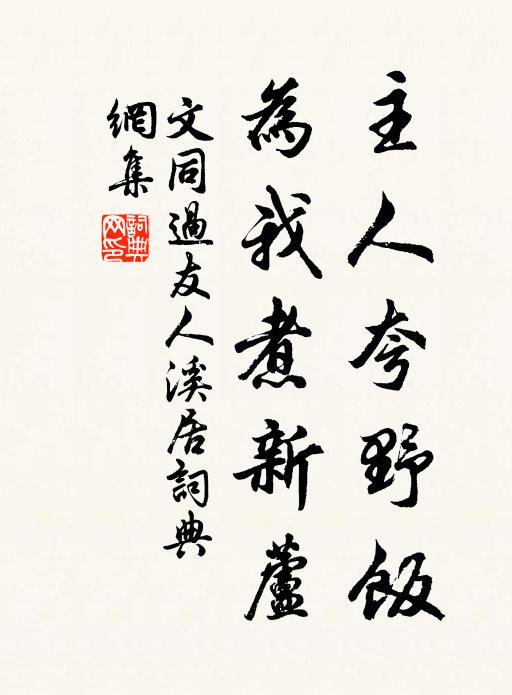 主人夸野飯
為我煮新蘆
文同過友人溪居詞典
網集
詞典
网印